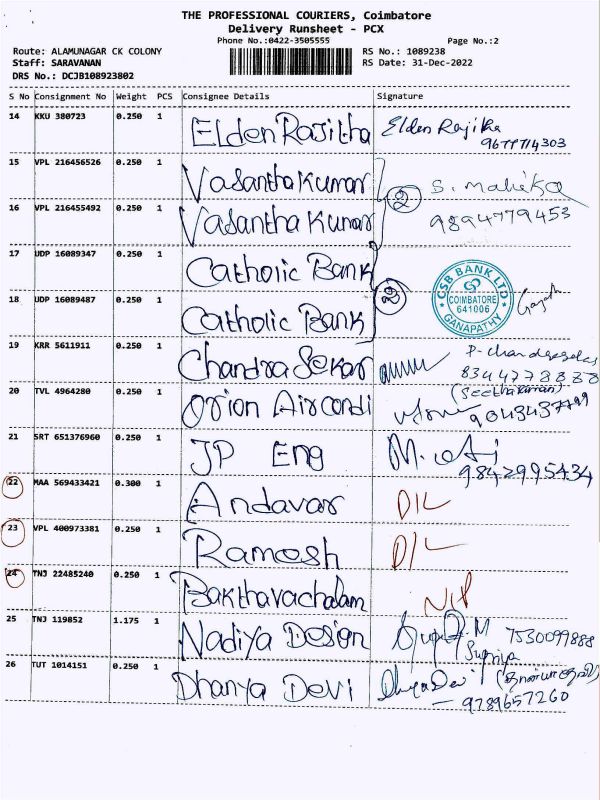 THE PROFESSIONAL COURIERS, Coimbatore
Delivery Runsheet - PCX
Phone No.:0422-3505555 Page No.:2
Route: ALAMUNAGAR CK COLONY RS No.: 1089238
Staff: SARAVANAN RS Date: 31-Dec-2022
DRS No.: DCJB108923802
S No Consignment No Weight PCS Consignee Details Signature
14 KKU 380723 0.250 1 Elden Rajitha Elden Rajitha
15 VPL 216456526 0.250 1 Vasantha Kumar
16 VPL 216455492 0.250 1 Vasantha Kumar 2 9894779453
17 UDP 16089347 0.250 1 Catholic Bank
18 UDP 16089487 0.250 1 Catholic Bank 2 CSB BANK LTD COIMBATORE 641006 GANAPATHY
19 KRR 5611911 0.250 1 Chandra Sekar
20 TVL 4964280 0.250 1 Orion Aircondi
21 SRT 651376960 0.250 1 JP Eng
9842995434
22 MAA 569433421 0.300 1 Andavar D/L
23 VPL 400973381 0.250 1 Ramesh D/L
24 TNJ 22485240 0.250 1 Bakthavachalam
25 TNJ 119852 1.175 1 Nadiya Design 7530099888
Supriya
26 TUT 1014151 0.250 1 Dhanya Devi
9789657260